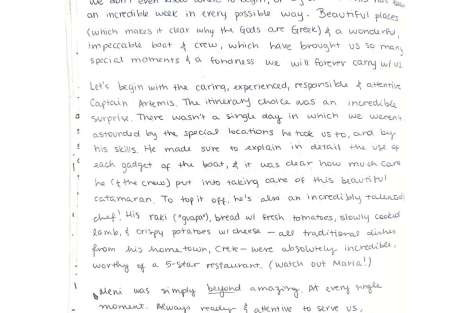 We don't even know where to begin,
an incredible week in every possible way. Beautiful places
(which makes it clear why the Gods are Greek) & a wonderful,
impeccable boat & crew, which have brought us so many
special moments & a fondness we will forever carry w/ us.
Let's begin with the caring, experienced, responsible & attentive
Captain Artemis. The itinerary choice was an incredible
surprise. There wasn't a single day in which we weren't
astounded by the special locations he took us to, and by
his skills. He made sure to explain in detail the use of
each gadget of the boat, & it was clear how much care
he (& the crew) put into taking care of this beautiful
catamaran. To top it off, he's also an incredibly talented
chef! His raki ("grapa"), bread w/ fresh tomatoes, slowly cooked
lamb, & crispy potatoes w/ cheese — all traditional dishes
from his hometown, Crete — were absolutely incredible,
worthy of a 5-star restaurant. (Watch out Maria!)
Meni was simply beyond amazing. At every single
moment. Always ready & attentive to serve us,